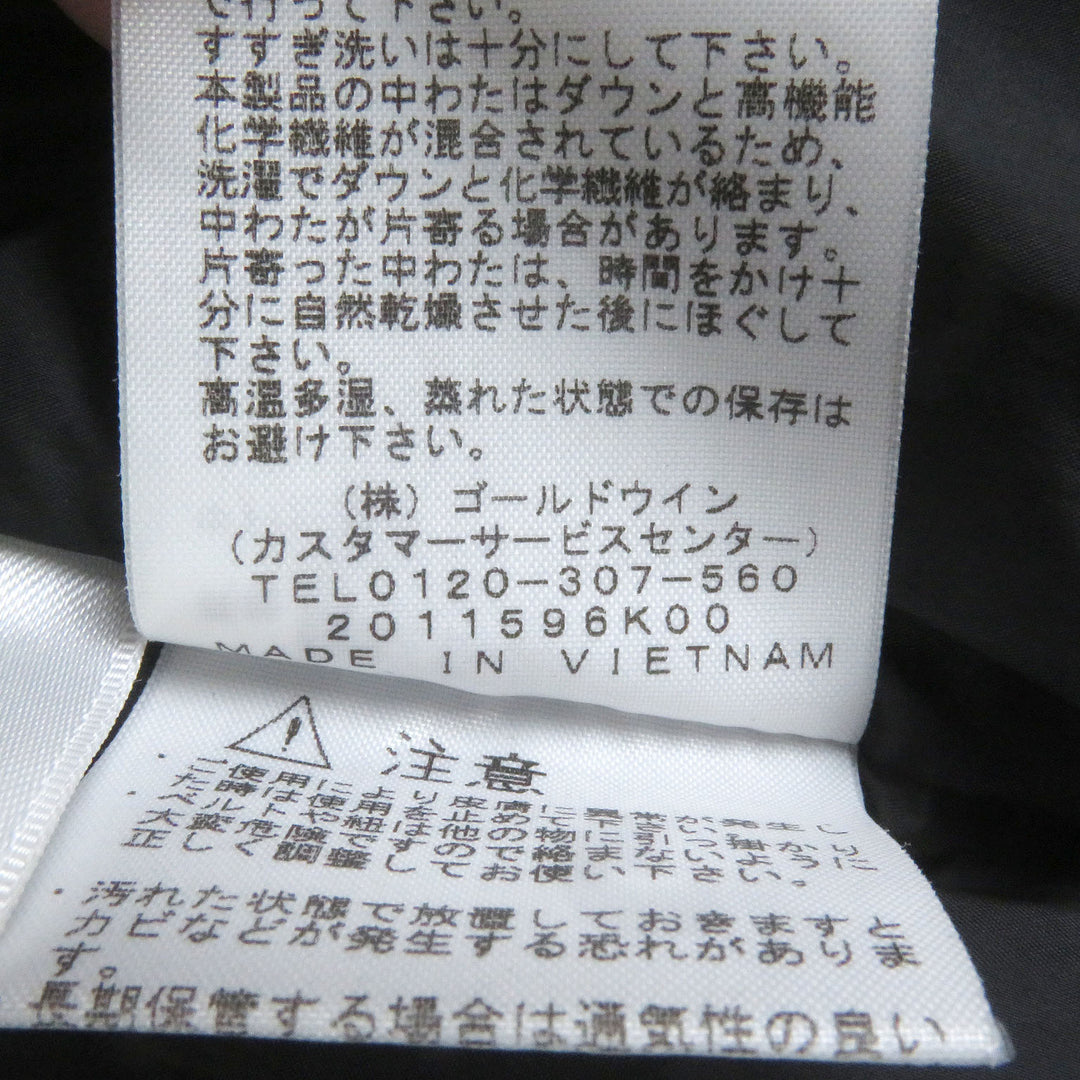 で行って下さい。
すすぎ洗いは十分にして下さい。
本製品の中わたはダウンと高機能
化学繊維が混合されているため、
洗濯でダウンと化学繊維が絡まり、
中わたが片寄る場合があります。
片寄った中わたは、時間をかけ十
分に自然乾燥させた後にほぐして
下さい。
高温多湿、蒸れた状態での保存は
お避け下さい。
(株)ゴールドウイン
(カスタマーサービスセンター)
TEL0120-307-560
2011596K00
MADE IN VIETNAM
注意
・ご使用により皮膚に異常が発生し
た時は使用を止めて
・ベルトや紐は他の物に引っ掛かり
大変危険ですので絶対
正しく調整してお使い下さい。
・汚れた状態で放置しておきますと
カビなどが発生する恐れがありま
す。
長期保管する場合は通気性の良い